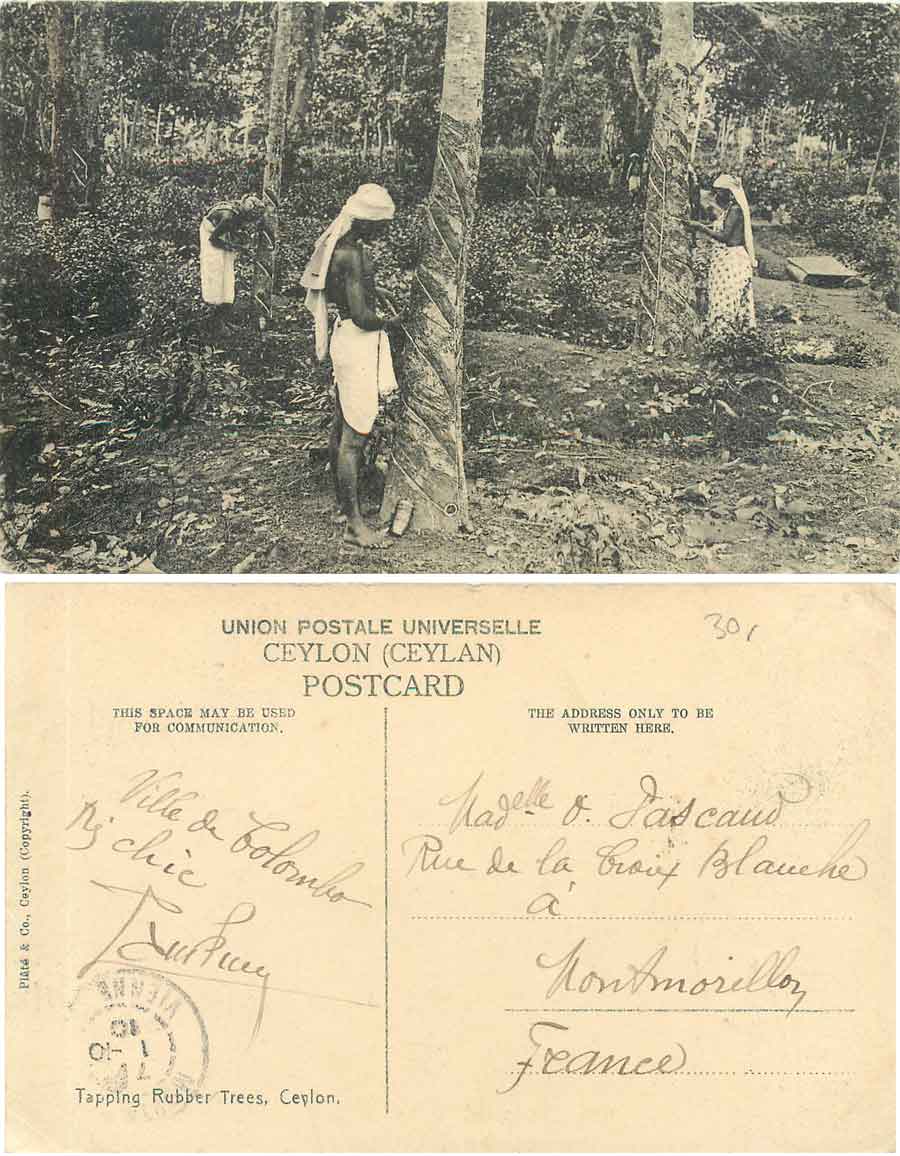 UNION POSTALE UNIVERSELLE
CEYLON (CEYLAN)
POSTCARD
30,
THIS SPACE MAY BE USED
FOR COMMUNICATION.
THE ADDRESS ONLY TO BE
WRITTEN HERE.
Ville de Colombo
chic
Madelle O. Pascaud
Rue de la Croix Blanche
à
Montmorillon
France
Plâté & Co., Ceylon (Copyright).
VIENNE
7
1 -10
10
Tapping Rubber Trees, Ceylon.